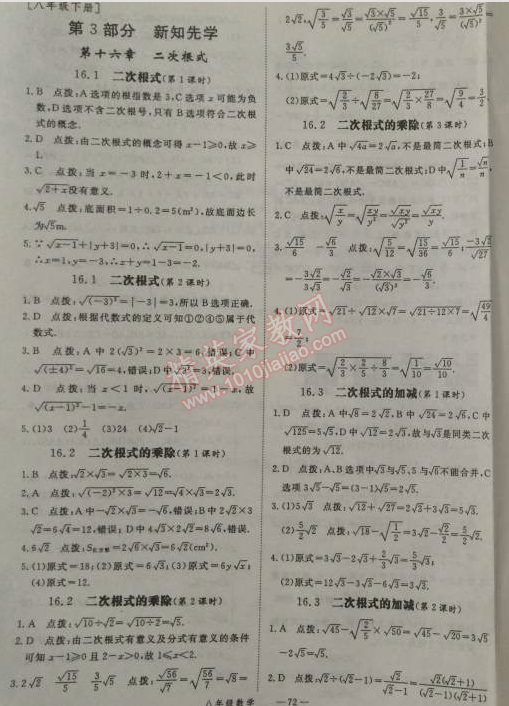 [八年级下册]
第3部分 新知先学
第十六章 二次根式
16.1 二次根式(第1课时)
1.B 点拨:A选项的根指数是3,C选项x可能为负
数,D选项不含二次根号,只有B选项符合二次根
式的概念.
2.D 点拨:由二次根式的概念可得x-1≥0,故x≥
1.
3.C 点拨:当x=-3时,2+x=-1<0,此时
√(2+x)没有意义.
4.√5 点拨:底面积=1÷0.2=5(m²),故底面边长
为√5m.
5.∵√(x-1)+|y+3|=0,∴√(x-1)=0,|y+3|=0,
∴x=1,y=-3,∴x+y=1-3=-2.
16.1 二次根式(第2课时)
1.B 点拨:√(-3)²=|-3|=3,所以B选项正确.
2.D 点拨:根据代数式的定义可知①②④⑤属于代
数式.
3.B 点拨:A中2(√3)²=2×3=6,错误;C中
√(±4)²=√16=4,错误;D中
4.D 点拨:当x<1时,√(x-1)²=1-x,故
√(x-1)²-1=-x.
5.(1)3 (2)1/4 (3)24 (4)√2-1
16.2 二次根式的乘除(第1课时)
1.B 点拨:√2×√3=√(2×3)=√6.
2.A 点拨:√((-2)²×3)=√12=√4×√3=2√3.
3.C 点拨:A中-√2×√3=-√6,错误;B中2√2×3
√2=6√4=12,错误;D中4√3×2√2=8√6,错误.
4.6√2 点拨:S=2√6×√3=6√2(cm²).
5.(1)原式=18;(2)原式=6√3;(3)原式=6y√x;
(4)原式=12.
16.2 二次根式的乘除(第2课时)
1.A 点拨:√10÷√2=√(10÷2)=√5.
2.D 点拨:由二次根式有意义及分式有意义的条件
可知x-1≥0且2-x>0,故1≤x<2.
3.2√2 √15/5 3/5√5 点拨:√56/√7=√(56/7)=√8=
2√2,√(3/5)=√3/√5=(√3×√5)/(√5)²=√15/5,3/√5=(3×√5)/(√5)²=
3√5/5.
4.(1)原式=4√3÷(-2√3)=-2;
(2)原式=√(2/3÷8/27)=√(2/3×27/8)=√(9/4)=3/2.
16.2 二次根式的乘除(第3课时)
1.C 点拨:A中√4a=2√a,不是最简二次根式;B
中√24=2√6,不是最简二次根式;D中√(1/n)=√n/n,
不是最简二次根式.
2.C 点拨:√(x/y)=√(xy/y²)=√xy/√y²=√xy/y.
3.√15/6 -√6/3 点拨:√(5/12)=√(15/36)=√15/6,-3√2/√27
=-3√2/3√3=-√2/√3=-√(2×3)/(√3)²=-√6/3.
4.(1)原式=√21÷√12×√7=√(21÷12×7)=√(49/4)
=7/2;
(2)原式=√(2/3×2/2÷8/3)=√(1/10)=√10/10.
16.3 二次根式的加减(第1课时)
1.D 点拨:A中√8=2√2,B中√24=2√6,C中
√125=5√5,D中√12=2√3,故与√3是同类二次
根式的为√12.
2.D 点拨:A、B选项中√3与√5、5与√6不能合并,C
选项3√5-√5=(3-1)√5=2√5.
3.(1)5√3 点拨:√12+√27=2√3+3√3=5√3.
(2)5/2√2 点拨:√18-√(1/2)=3√2-√2/2=5/2√2.
4.(1)原式=3√3-2√3+2/3√3=5/3√3;
(2)原式=12√3-3√3-6√3=3√3.
16.3 二次根式的加减(第2课时)
1.A 点拨:√45-√(2/5)×√50=√45-√20=3√5
-2√5=√5.
2.D 点拨:√2÷(√2-1)=√2/(√2-1)=√2(√2+1)/((√2-1)(√2+1))
八年级数学
—72—
精英家教网
www.1010jiajiao.com